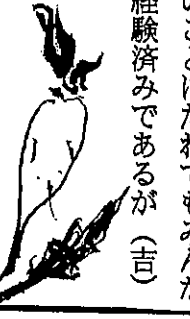 いことはだれでもみんな
経験済みであるが（吉）